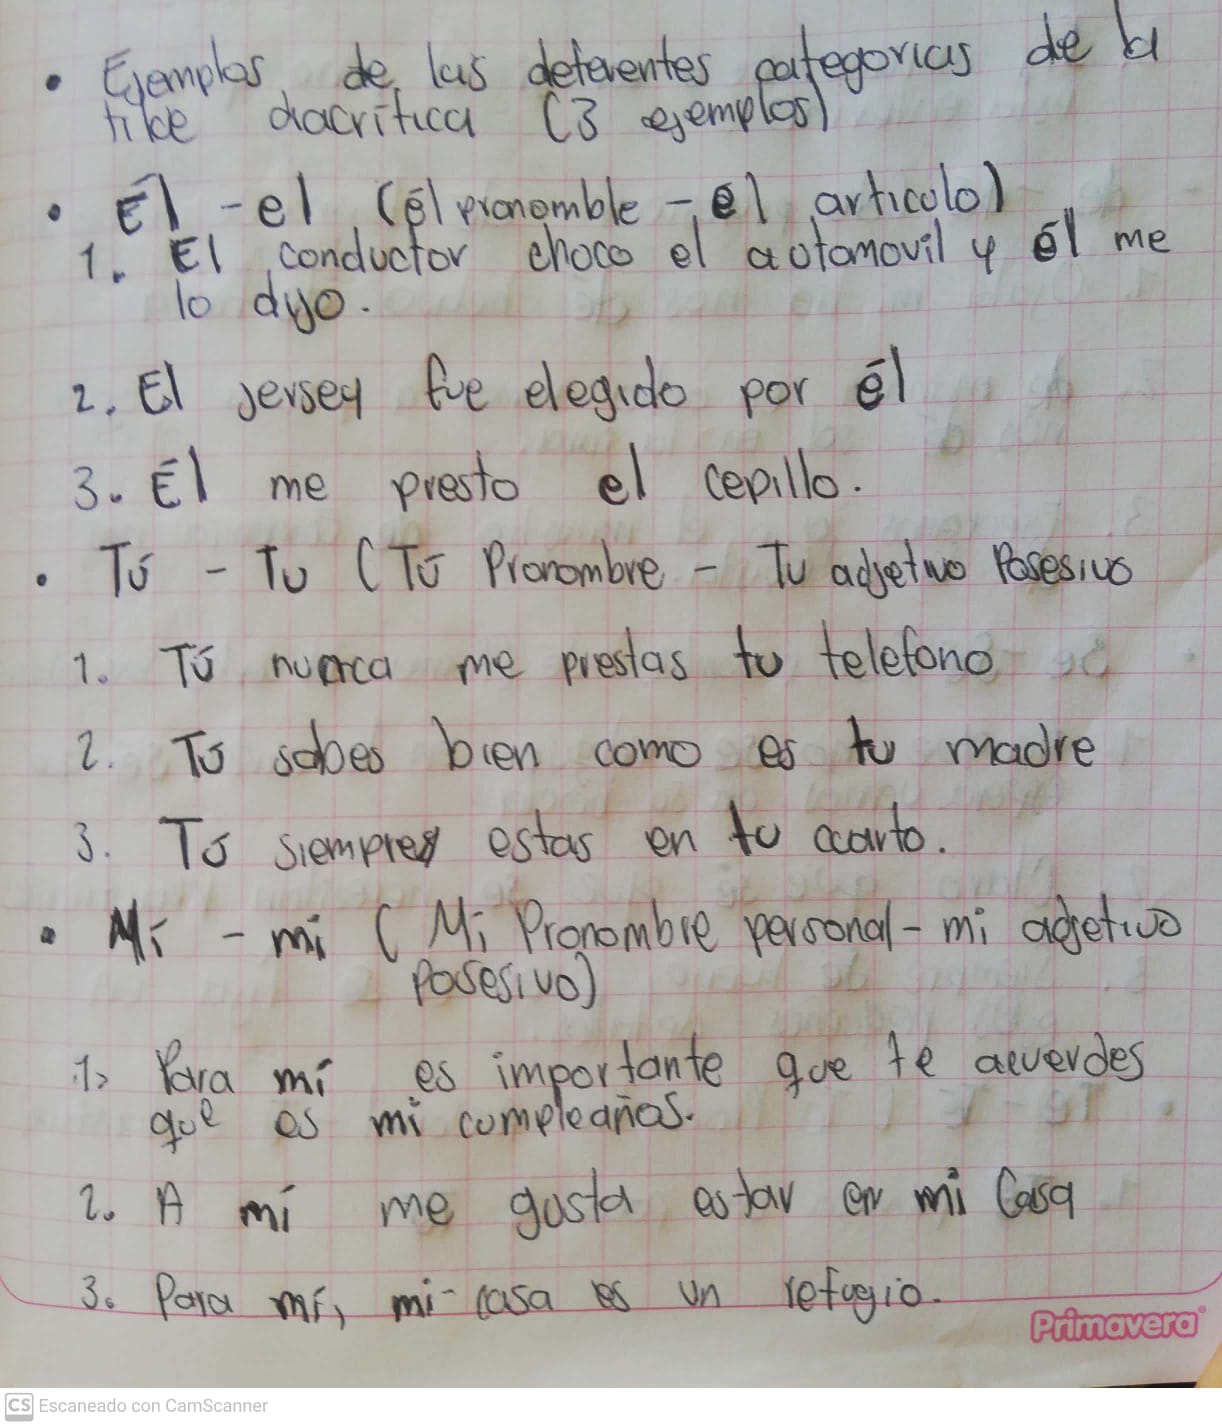 • Ejemplos de las deferentes categorias de la
tilde diacrítica (3 ejemplos)
• Él - el (él pronomble - el articulo)
1. El conductor choco el automovil y él me
lo dijo.
2. El jersey fue elegido por él
3. Él me presto el cepillo.
• Tú - Tu (Tú Pronombre - Tu adjetivo Posesivo
1. Tú nunca me prestas tu telefono
2. Tú sabes bien como es tu madre
3. Tú siempre estas en tu cuarto.
• Mí - mi (Mi Pronombre personal - mi adjetivo
Posesivo)
1. Para mí es importante que te acuerdes
que es mi cumpleaños.
2. A mí me gusta estar en mi Casa
3. Para mí, mi casa es un refugio.
Primavera
CS Escaneado con CamScanner